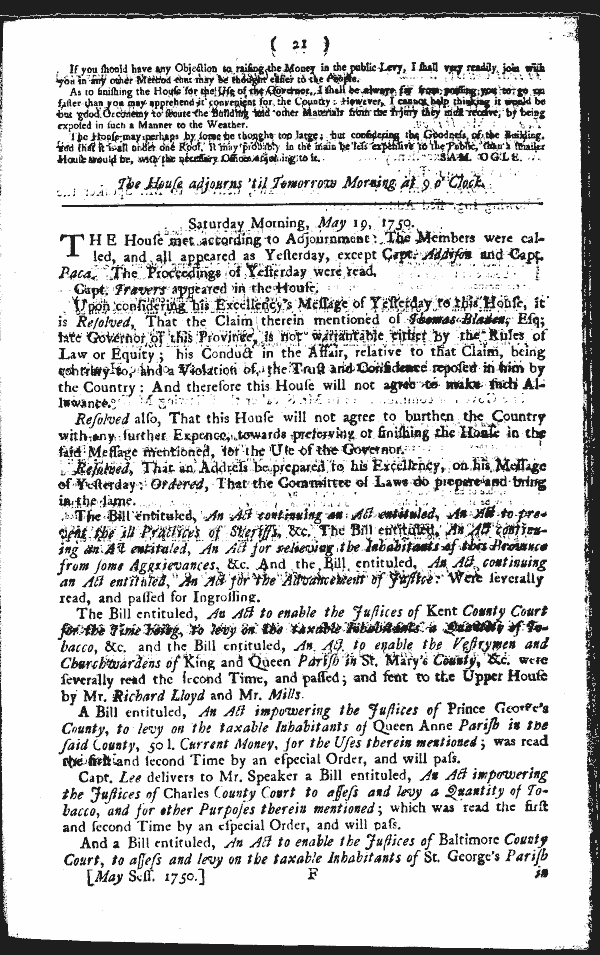 ( 21 )
If you ſhould have any Objection to raiſing the Money in the public Levy, I ſhall very readily join with
you in any other Method that may be thought eaſier to the People.
As to finiſhing the Houſe for the Uſe of the Governor, I ſhall be always far from preſſing you to go on
faſter than you may apprehend it convenient for the Country: However, I cannot help thinking it would be
but good Oeconomy to ſecure the Building and other Materials from the Injury they muſt receive, by being
expoſed in ſuch a Manner to the Weather.
The Houſe may perhaps by ſome be thought too large; but conſidering the Goodneſs of the Building,
and that it is all under one Roof, it may probably in the main be leſs expenſive to the Public, than a ſmaller
Houſe would be, with the neceſſary Offices adjoining to it. SAM. OGLE.
The Houſe adjourns 'til Tomorrow Morning at 9 o'Clock.
Saturday Morning, May 19, 1750.
THE Houſe met according to Adjournment: The Members were cal-
led, and all appeared as Yeſterday, except Capt. Addiſon and Capt.
Paca. The Proceedings of Yeſterday were read.
Capt. Travers appeared in the Houſe.
Upon conſidering his Excellency's Meſſage of Yeſterday to this Houſe, it
is Reſolved, That the Claim therein mentioned of Thomas Bladen, Eſq;
late Governor of this Province, is not warrantable either by the Rules of
Law or Equity; his Conduct in the Affair, relative to that Claim, being
contrary to, and a Violation of, the Truſt and Confidence repoſed in him by
the Country: And therefore this Houſe will not agree to make ſuch Al-
lowance.
Reſolved alſo, That this Houſe will not agree to burthen the Country
with any further Expence, towards preſerving or finiſhing the Houſe in the
ſaid Meſſage mentioned, for the Uſe of the Governor.
Reſolved, That an Addreſs be prepared to his Excellency, on his Meſſage
of Yeſterday: Ordered, That the Committee of Laws do prepare and bring
in the ſame.
The Bill entituled, An Act continuing an Act entituled, An Act to pre-
vent the ill Practices of Sheriffs, &c. The Bill entituled, An Act continu-
ing an Act entituled, An Act for relieving the Inhabitants of this Province
from ſome Aggrievances, &c. And the Bill entituled, An Act continuing
an Act entituled, An Act for the Advancement of Juſtice: Were ſeverally
read, and paſſed for Ingroſſing.
The Bill entituled, An Act to enable the Juſtices of Kent County Court
for the Time being, to levy on the taxable Inhabitants a Quantity of To-
bacco, &c. and the Bill entituled, An Act to enable the Veſtrymen and
Churchwardens of King and Queen Pariſh in St. Mary's County, &c. were
ſeverally read the ſecond Time, and paſſed; and ſent to the Upper Houſe
by Mr. Richard Lloyd and Mr. Mills.
A Bill entituled, An Act impowering the Juſtices of Prince George's
County, to levy on the taxable Inhabitants of Queen Anne Pariſh in the
ſaid County, 50 l. Current Money, for the Uſes therein mentioned; was read
the firſt and ſecond Time by an eſpecial Order, and will paſs.
Capt. Lee delivers to Mr. Speaker a Bill entituled, An Act impowering
the Juſtices of Charles County Court to aſſeſs and levy a Quantity of To-
bacco, and for other Purpoſes therein mentioned; which was read the firſt
and ſecond Time by an eſpecial Order, and will paſs.
And a Bill entituled, An Act to enable the Juſtices of Baltimore County
Court, to aſſeſs and levy on the taxable Inhabitants of St. George's Pariſh
[May Seſſ. 1750.] F in